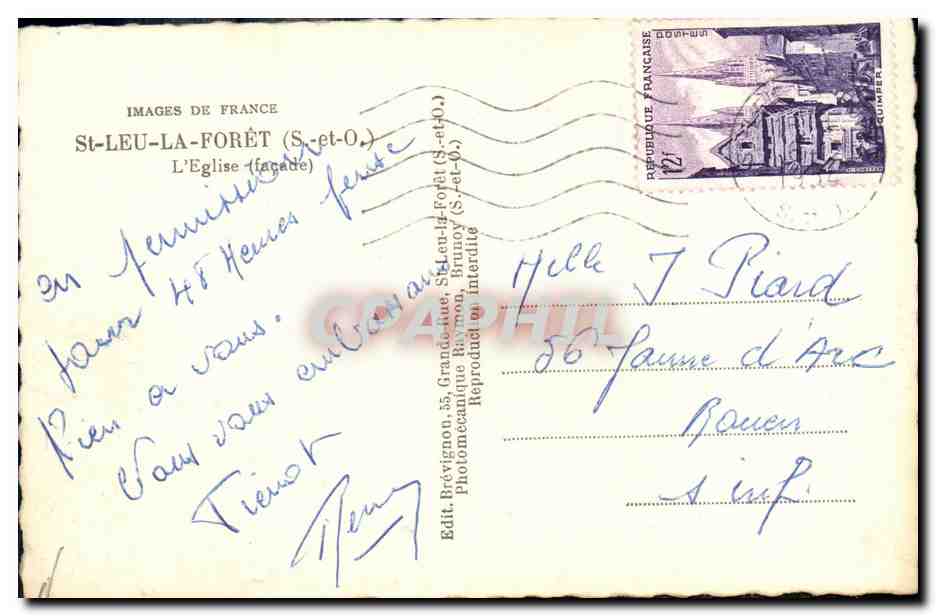 IMAGES DE FRANCE
St-LEU-LA-FORÊT (S.-et-O.)
L'Eglise (façade)
en permission
pour 48 Heures pense
Bien a vous.
Vous vous embrassant
Pierrot
Edit. Brévignon, 55, Grande-Rue, St-Leu-la-Forêt (S.-et-O.)
Photomécanique Raymon, Brunoy (S.-et-O.)
Reproduction interdite
REPUBLIQUE FRANÇAISE
POSTES
12f
QUIMPER
Melle J Piard
56 Jeanne d'Arc
Rouen
S inf.
CPAPHIL